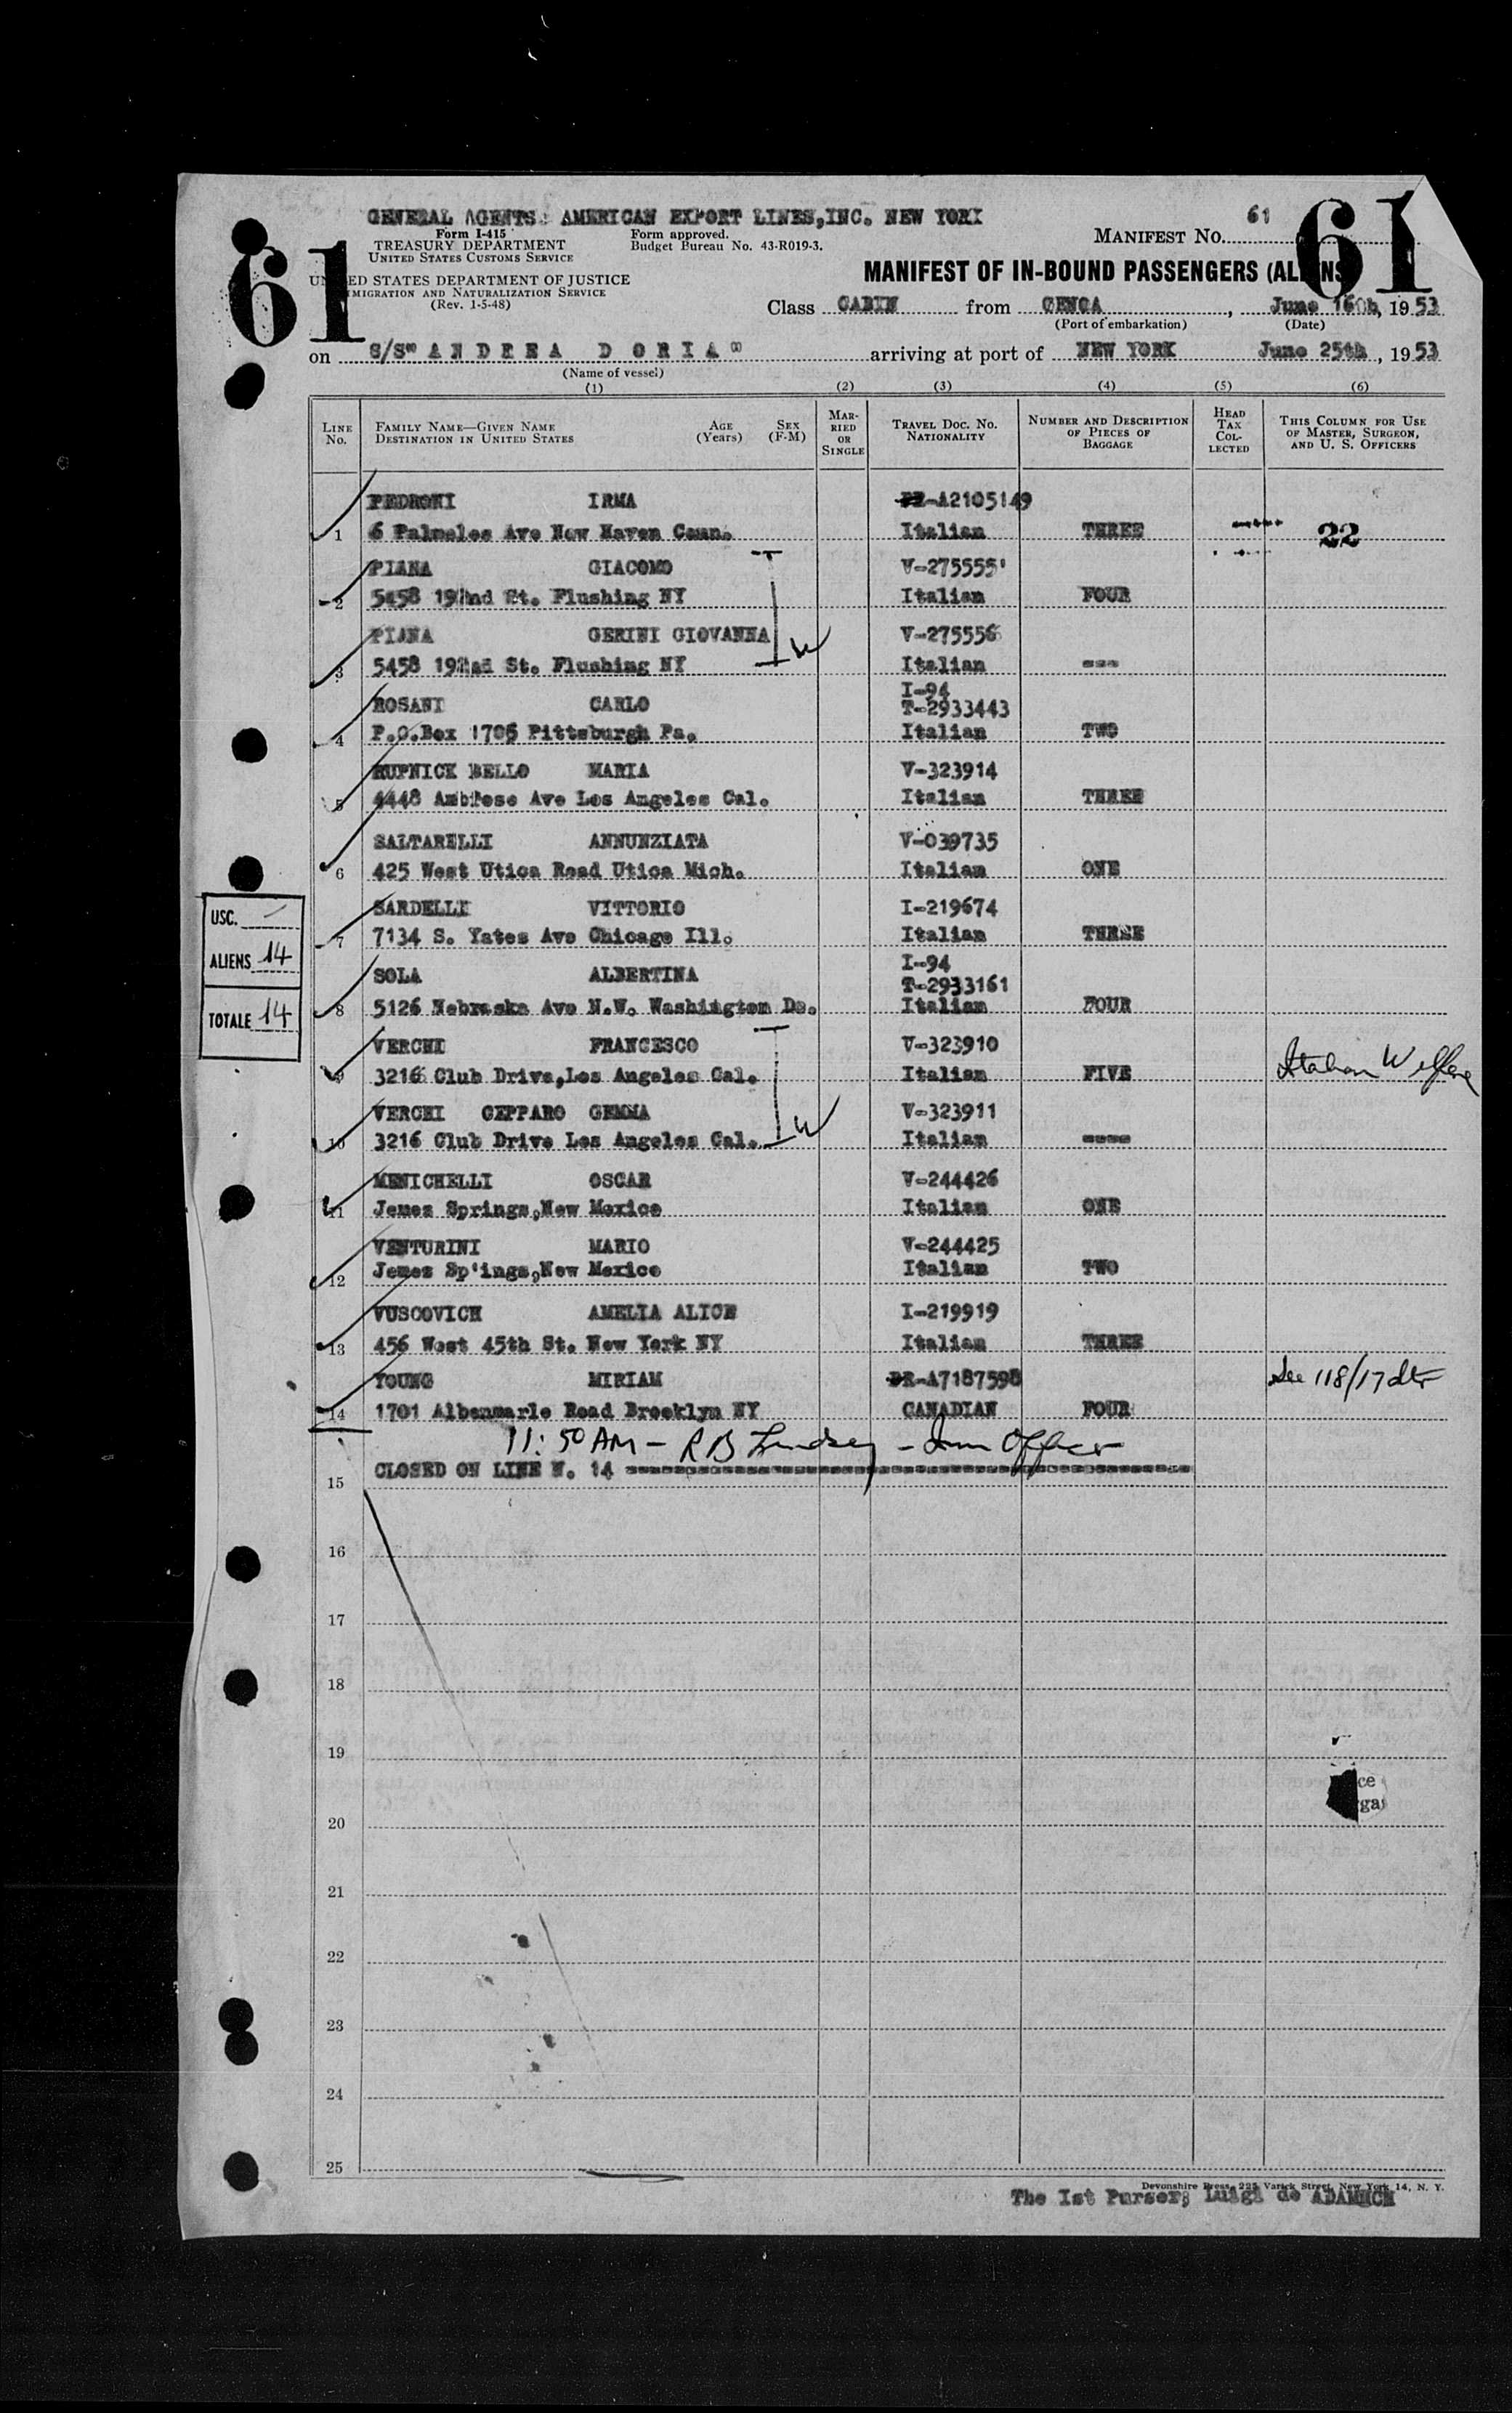 GENERAL AGENTS: AMERICAN EXPORT LINES,INC. NEW YORK
Form I-415
TREASURY DEPARTMENT
UNITED STATES CUSTOMS SERVICE
Form approved.
Budget Bureau No. 43-R019-3.
61
MANIFEST NO.
61
61
UNITED STATES DEPARTMENT OF JUSTICE
IMMIGRATION AND NATURALIZATION SERVICE
(Rev. 1-5-48)
MANIFEST OF IN-BOUND PASSENGERS (ALIENS
Class CABIN from GENOA, June 16th, 1953
(Port of embarkation) (Date)
on S/S" ANDREA DORIA" arriving at port of NEW YORK June 25th, 1953
(Name of vessel)
(1) (2) (3) (4) (5) (6)
LINE No. FAMILY NAME—GIVEN NAME DESTINATION IN UNITED STATES AGE (Years) SEX (F-M) MARRIED OR SINGLE TRAVEL DOC. NO. NATIONALITY NUMBER AND DESCRIPTION OF PIECES OF BAGGAGE HEAD TAX COLLECTED THIS COLUMN FOR USE OF MASTER, SURGEON, AND U. S. OFFICERS
PEDRONI IRMA A2105149
1 6 Ave New Haven Conn. Italian THREE 22
PIANA GIACOMO V-275555
2 5458 192nd St. Flushing NY Italian FOUR
PIANA GERINI GIOVANNA V-275556
3 5458 192nd St. Flushing NY Italian ---
W
I-94
ROSANI CARLO T-2933443
4 P.O.Box 1705 Pittsburgh Pa. Italian TWO
RUPNICK BELLO MARIA V-323914
5 4448 Ambrose Ave Los Angeles Cal. Italian THREE
SALTARELLI ANNUNZIATA V-039735
6 425 West Utica Road Utica Mich. Italian ONE
SARDELLI VITTORIO I-219674
7 7134 S. Yates Ave Chicago Ill. Italian THREE
I-94
SOLA ALBERTINA T-2933161
8 5126 Nebraska Ave N.W. Washiigtom Dc. Italian FOUR
USC. —
ALIENS 14
TOTALE 14
VERCHI FRANCESCO V-323910
9 3216 Club Drive,Los Angeles Cal. Italian FIVE Italian Welfare
VERCHI GEPPARO GEMMA V-323911
10 3216 Club Drive Los Angeles Cal. Italian ----
W
MENICHELLI OSCAR V-244426
11 Jemez Springs,New Mexico Italian ONE
VENTURINI MARIO V-244425
12 Jemez Sp'ings,New Mexico Italian TWO
VUSCOVICH AMELIA ALICE I-219919
13 456 West 45th St. New York NY Italian THREE
YOUNG MIRIAM A7187598 See 118/17
14 1701 Albenmarle Road Brooklyn NY CANADIAN FOUR
11:50 AM - R B Lindsey - Imm Officer
CLOSED ON LINE N. 14
15
16
17
18
19
20
21
22
23
24
25
Devonshire Press, 225 Varick Street, New York 14, N. Y.
The 1st Purser; Luigi de